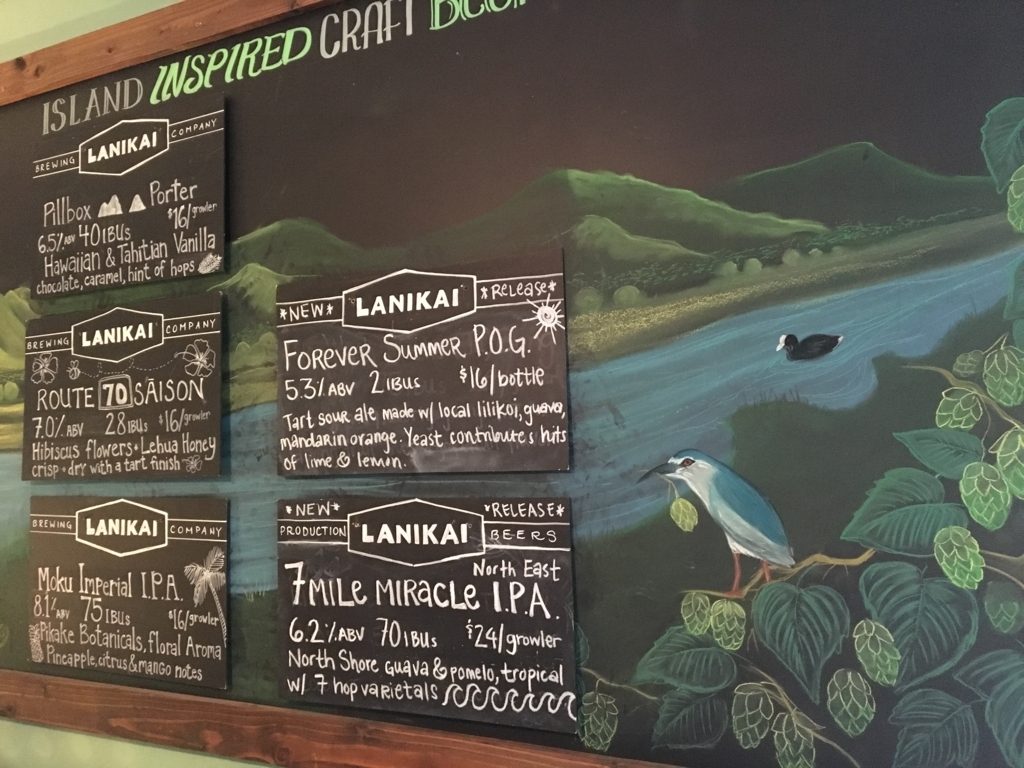 ISLAND INSPIRED CRAFT
BREWING LANIKAI COMPANY
Pillbox Porter
6.5% ABV 40 IBUs $16/growler
Hawaiian & Tahitian Vanilla
chocolate, caramel, hint of hops
BREWING LANIKAI COMPANY
ROUTE 70 SAISON
7.0% ABV 28 IBUs $16/growler
Hibiscus flowers + Lehua Honey
crisp + dry with a tart finish
BREWING LANIKAI COMPANY
Moku Imperial I.P.A.
8.1% ABV 75 IBUs $16/growler
Pikake Botanicals, floral Aroma
Pineapple, citrus & mango notes
*NEW* LANIKAI *Release*
Forever Summer P.O.G.
5.3% ABV 2 IBUs $16/bottle
Tart sour ale made w/ local lilikoi, guava,
mandarin orange. Yeast contributes hits
of lime & lemon.
*NEW* *RELEASE*
PRODUCTION LANIKAI BEERS
North East
7 MILE MIRACLE I.P.A.
6.2% ABV 70 IBUs $24/growler
North Shore guava & pomelo, tropical
w/ 7 hop varietals